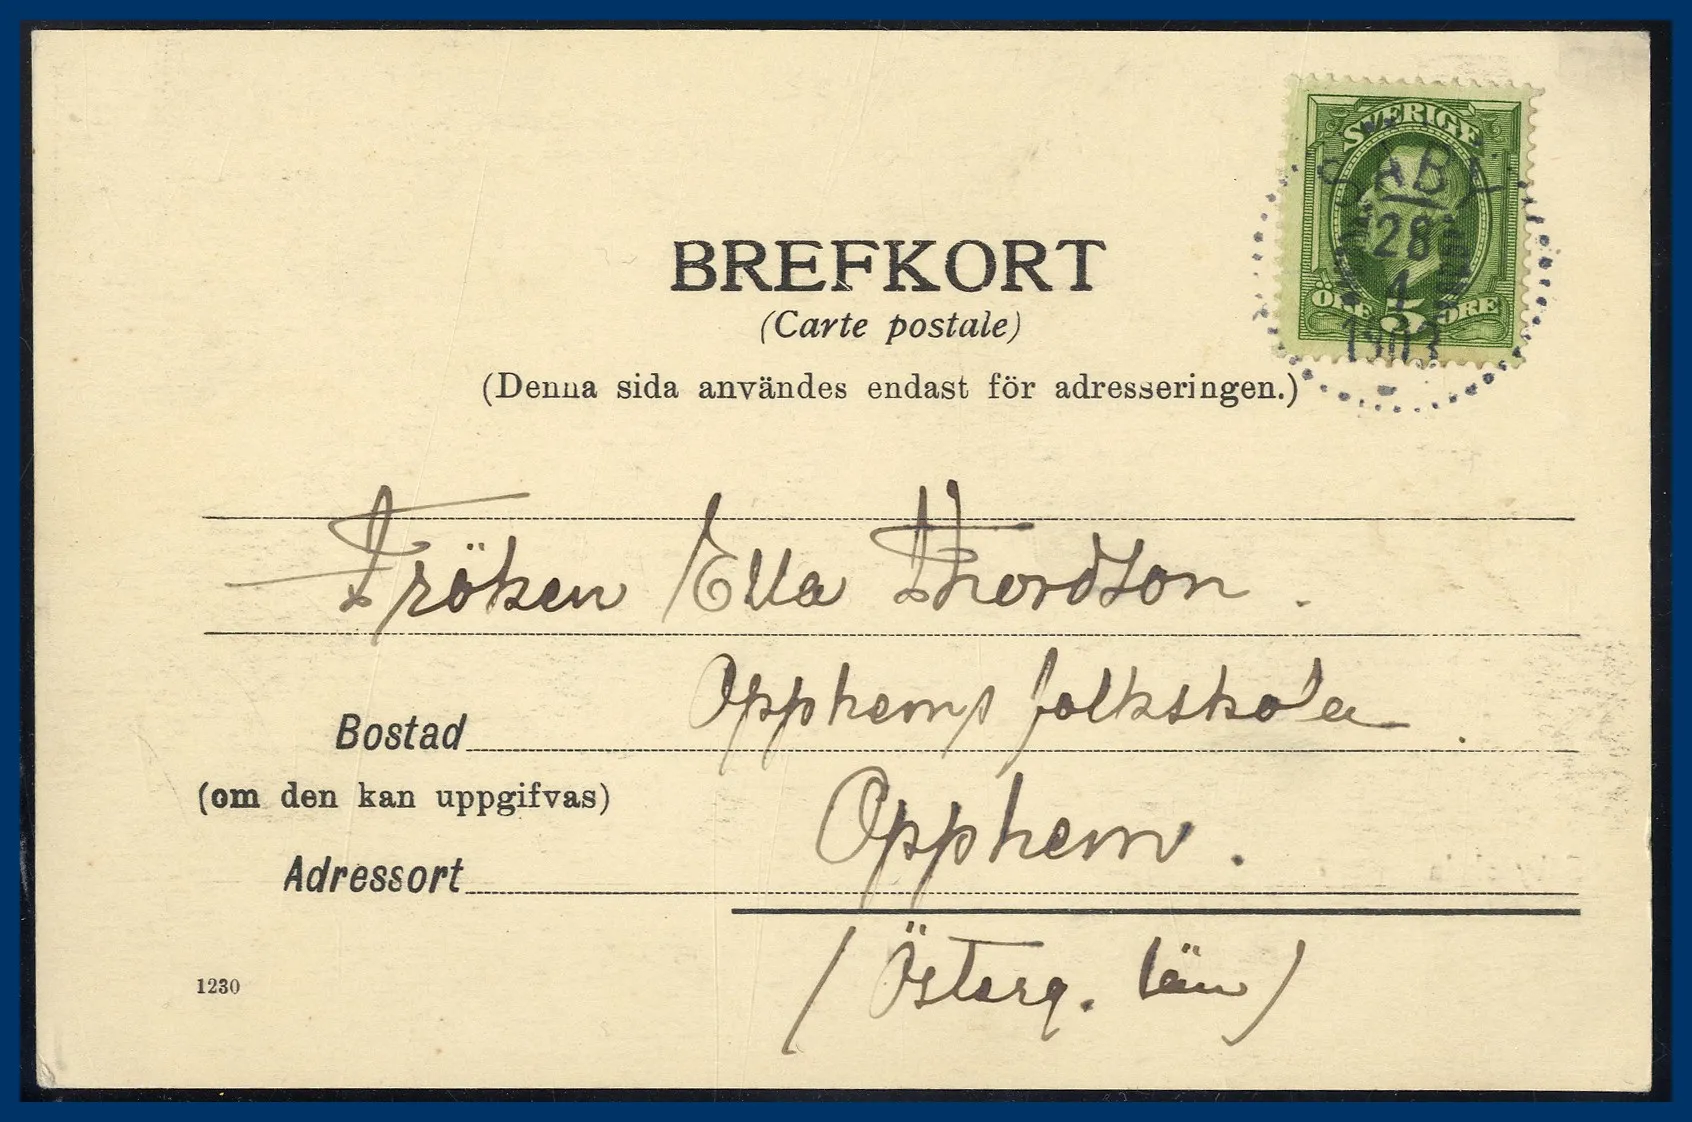 SVERIGE
28
1
1903
ÖRE 5 ÖRE
BREFKORT
(Carte postale)
(Denna sida användes endast för adresseringen.)
Fröken Ella Thordson.
Opphems folkskola.
Bostad
(om den kan uppgifvas)
Opphem.
Adressort
(Österg. län)
1230